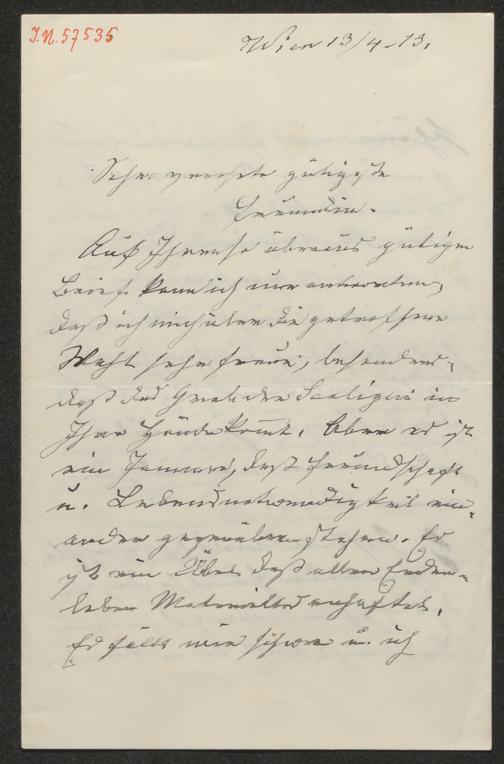 I.N. 57535
Wien 13/4 - 13.
Sehr verehrte gütigste
Freundin.
Auf Ihren so überaus gütigen
Brief kann ich nur antworten,
daß ich mich über die getroffene
Wahl sehr freue, besonders,
daß das Grab der Seeligen in
Ihre Hände kommt. Aber es ist
ein Jammer, daß Freundschaft
u. Lebensnotwendigkeit ein-
ander gegenüber stehen. Es
ist ein Übel, daß allem Erden-
leben Materielles anhaftet.
Es fällt mir schwer u. ich